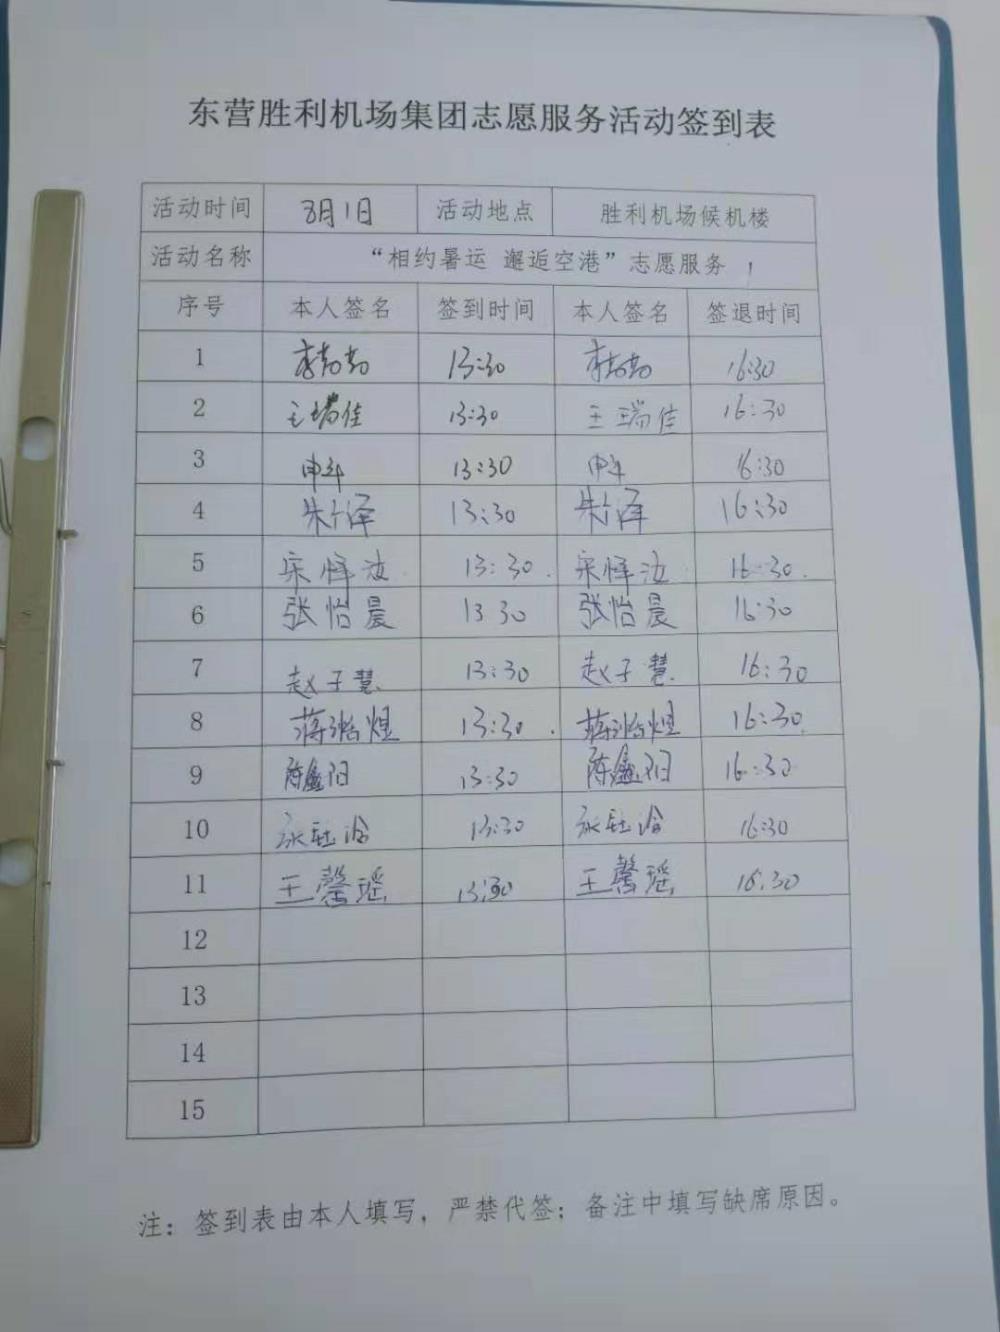 东营胜利机场集团志愿服务活动签到表
活动时间 8月1日 活动地点 胜利机场候机楼
活动名称 “相约暑运 邂逅空港”志愿服务
序号 本人签名 签到时间 本人签名 签退时间
1 李勃勃 13:30 李勃勃 16:30
2 王瑞佳 13:30 王瑞佳 16:30
3 申华 13:30 申华 16:30
4 13:30 16:30
5 宋怿汝 13:30. 宋怿汝 16:30.
6 张怡晨 13 30 张怡晨 16:30
7 赵子慧 13:30 赵子慧 16:30
8 蒋浩煜 13:30. 蒋浩煜 16:30
9 13:30 16:30
10 13:30 16:30
11 王馨瑶 13:30 王馨瑶 16:30
12
13
14
15
注：签到表由本人填写，严禁代签；备注中填写缺席原因。